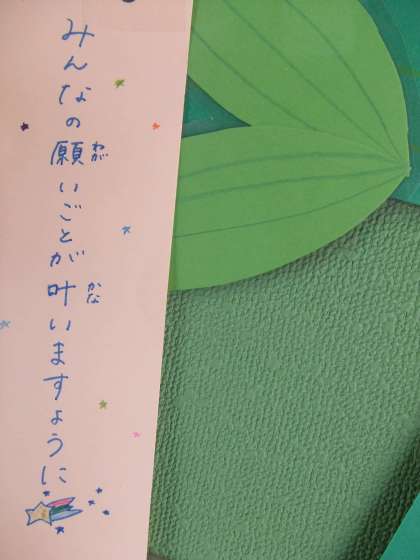 みんなの願いごとが叶いますように
ねが
かな